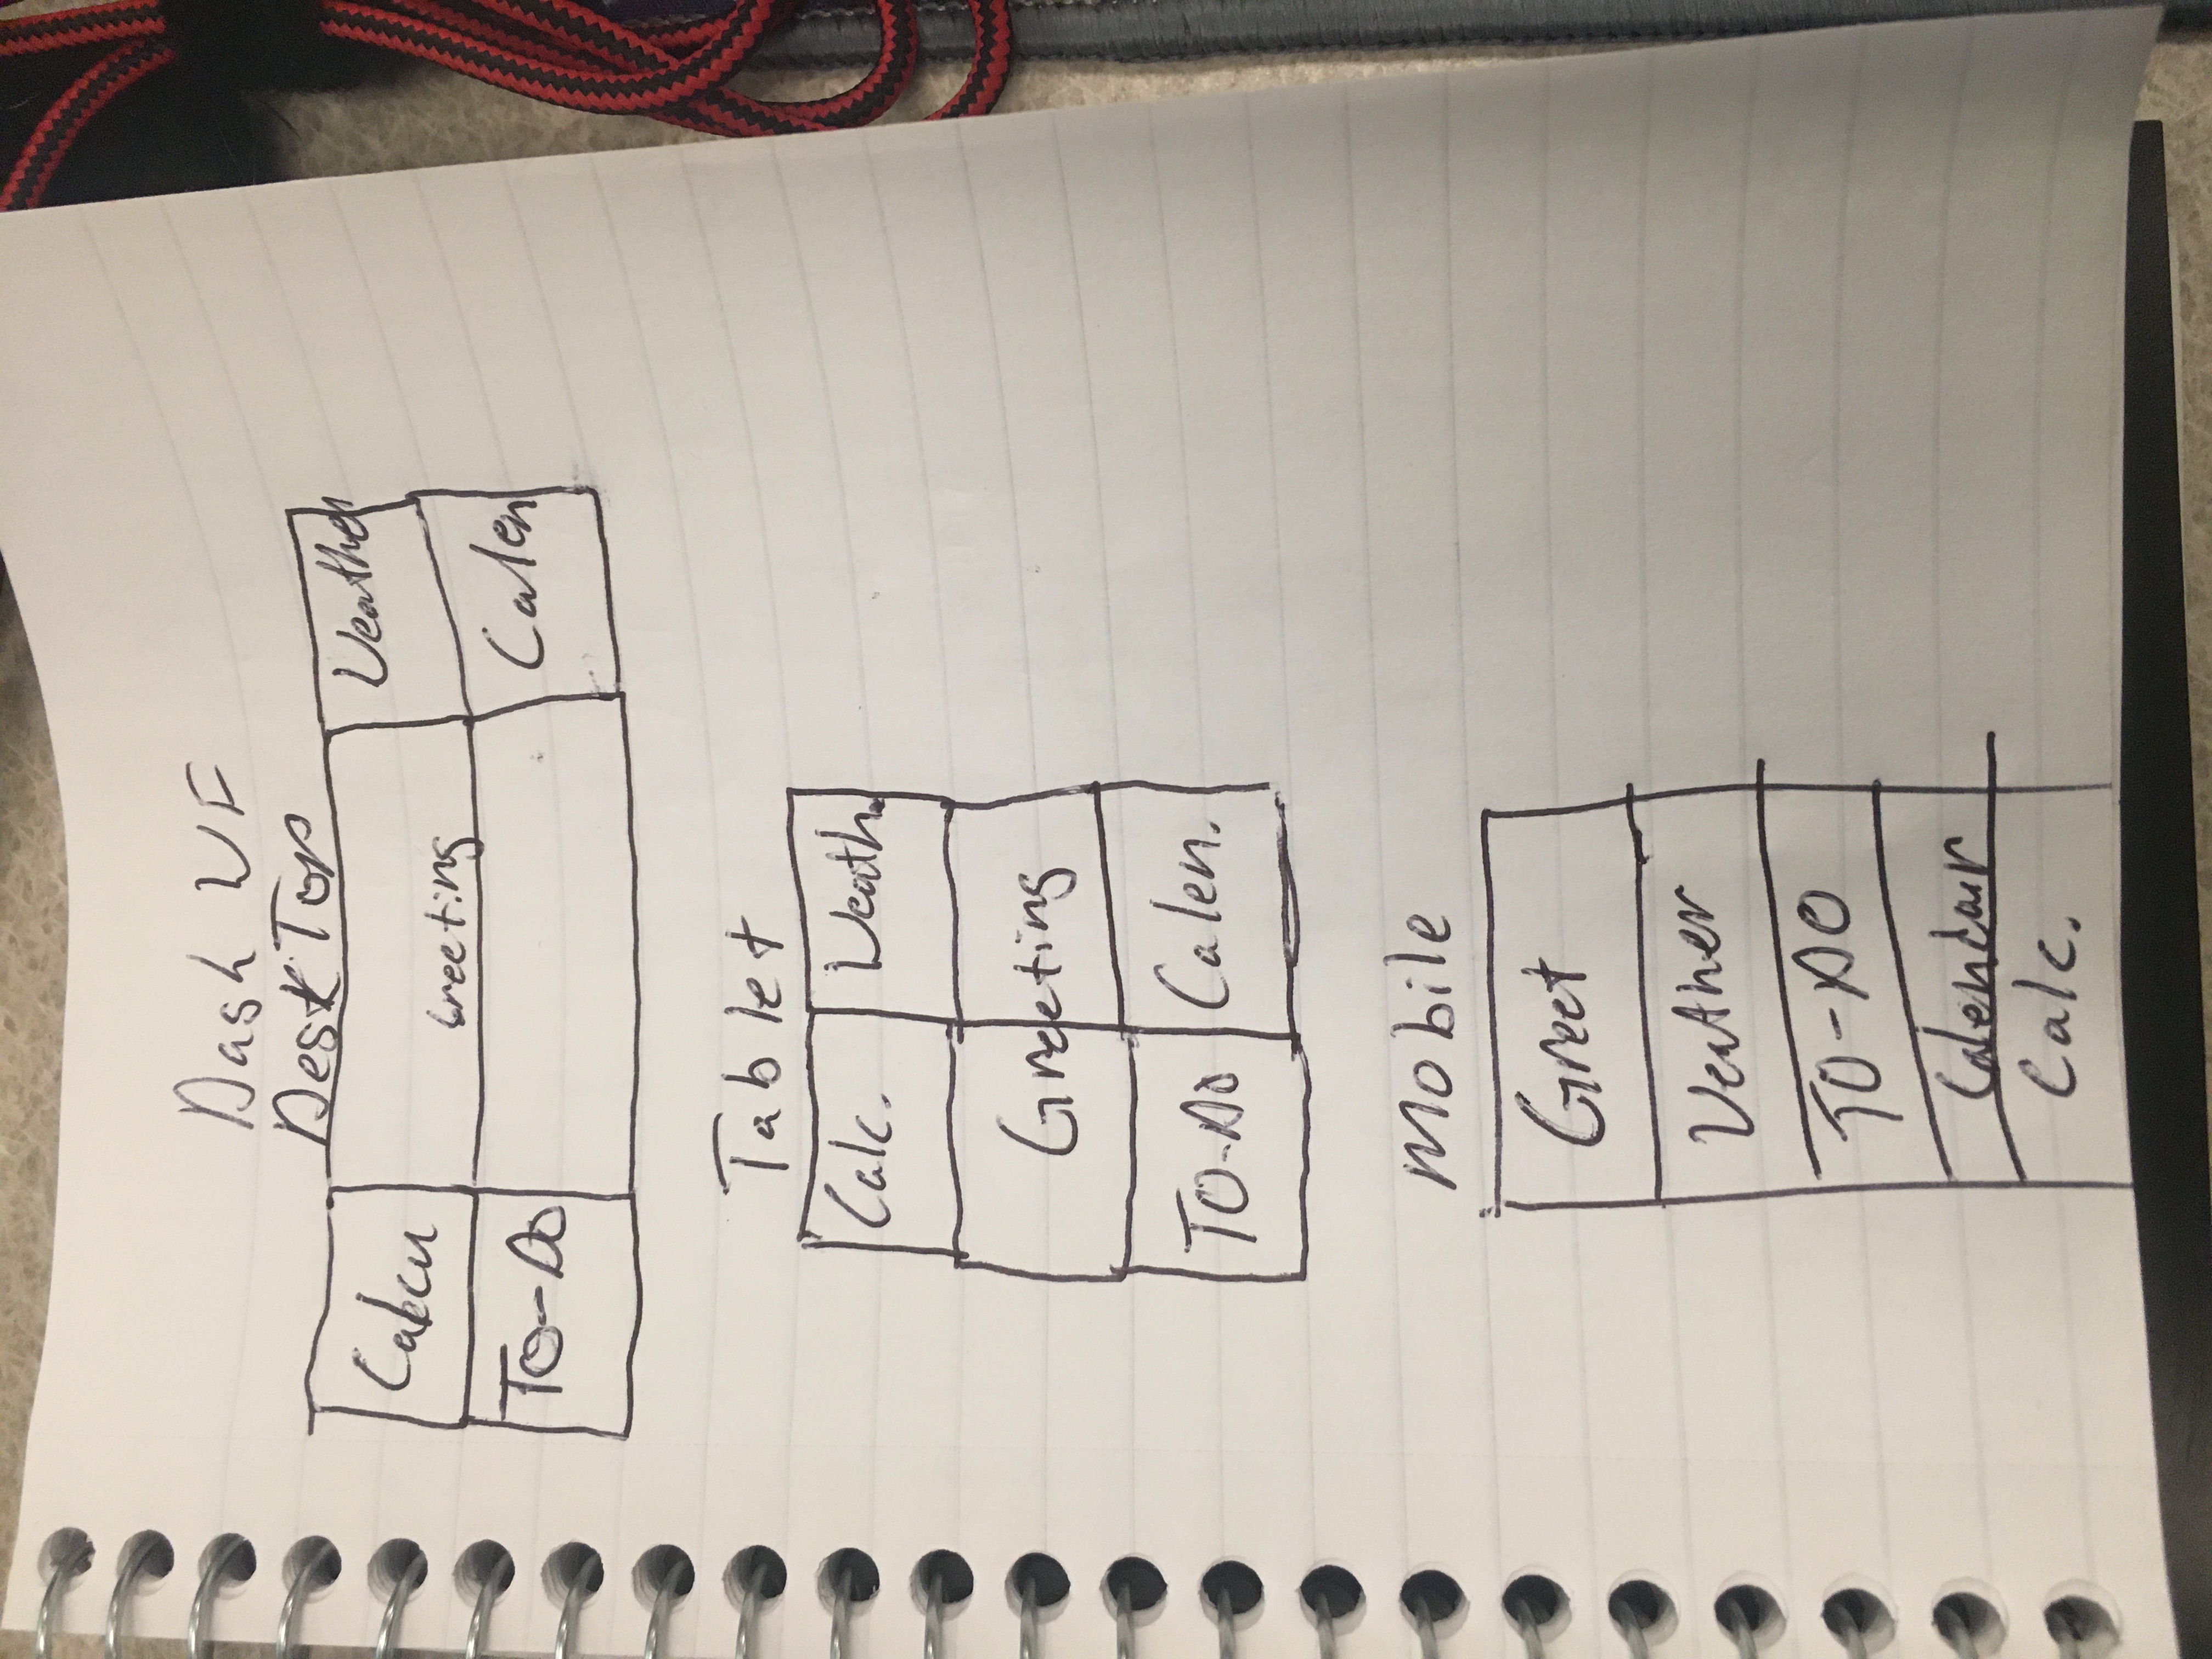 Dash WF
DeskTop
Calcu
Greeting
Weather
To-Do
Calen
Tablet
Calc.
Weath.
Greeting
TO-DO
Calen.
Mobile
Greet
Weather
TO-DO
Calendar
Calc.